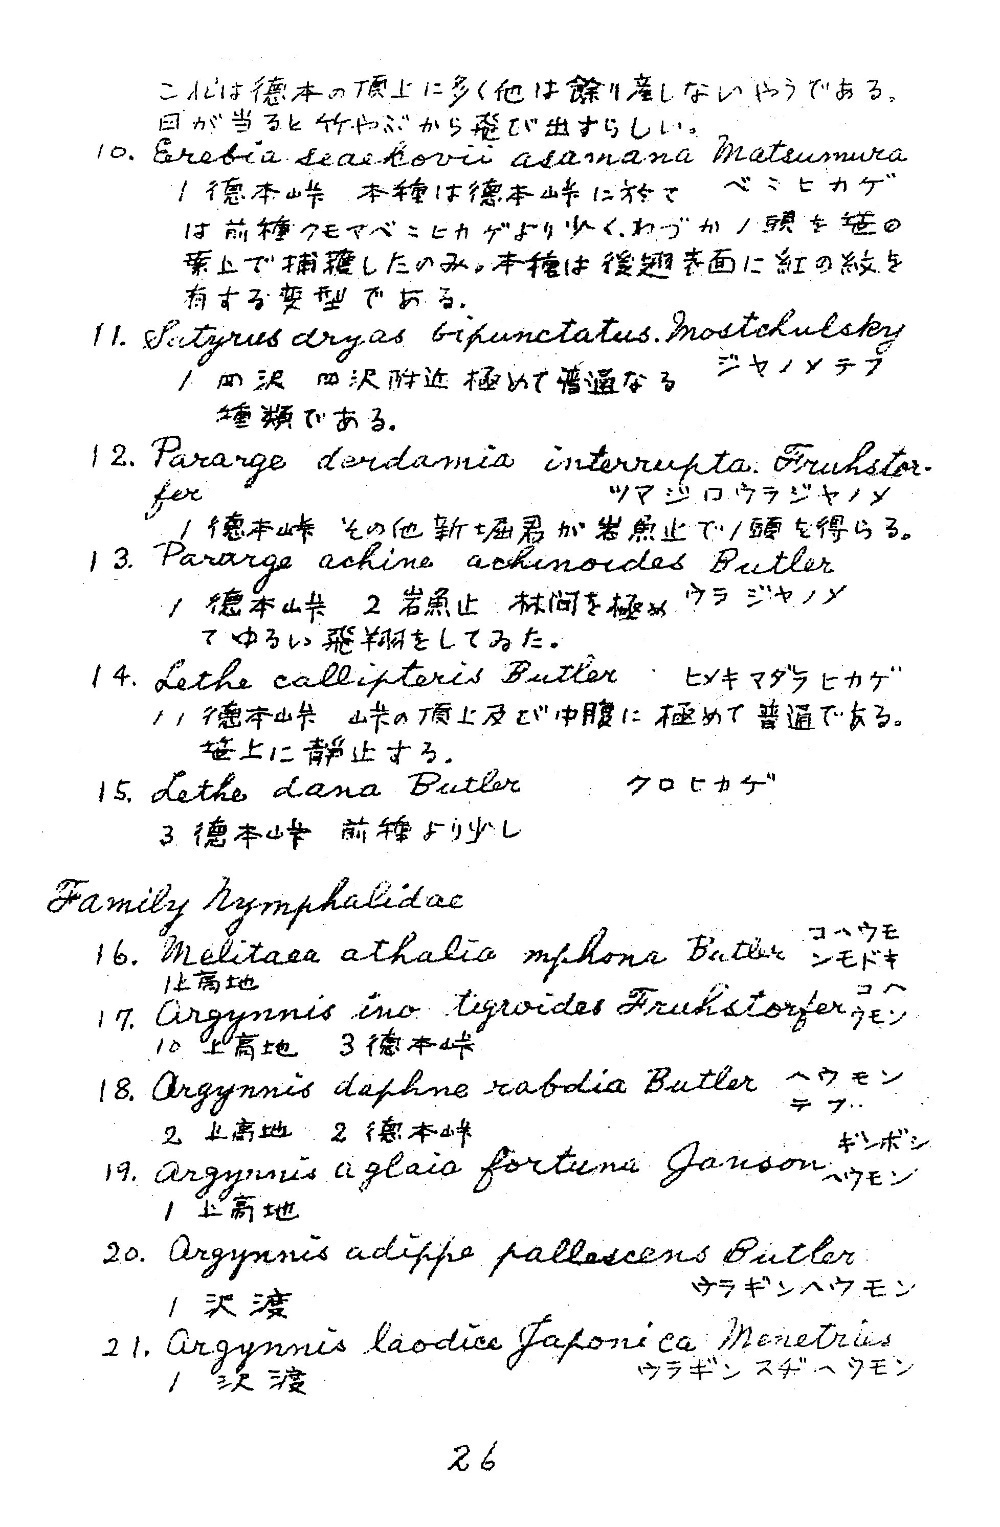 これは德本の頂上に多く他は餘り産しないやうである。
日が当ると竹やぶから飛び出すらしい。
10. Erebia seaekovii asamana Matsumura
1 德本峠 本種は德本峠に於て ベニヒカゲ
は前種クモマベニヒカゲより少く、わづか1頭を笹の
葉上で捕獲したのみ。本種は後翅表面に紅の紋を
有する変型である。
11. Satyrus dryas bipunctatus. Mostchulsky
ジヤノメテフ
1 四沢 四沢附近 極めて普通なる
種類である。
12. Pararge derdamia interrupta. Fruhstor-
fer ツマジロウラジヤノメ
1 德本峠 その他新堀君が岩魚止で1頭を得らる。
13. Pararge achine achinoides Butler
1 德本峠 2 岩魚止 林间を極め ウラジヤノメ
てゆるい飛翔をしてゐた。
14. Lethe callipteris Butler ヒメキマダラヒカゲ
11 德本峠 峠の頂上及び中腹に極めて普通である。
笹上に静止する。
15. Lethe dana Butler クロヒカゲ
3 德本峠 前種より少し
Family Nymphalidae
16. Melitaea athalia mphona Butler コヘウモ
ンモドキ
1上高地
17. Argynnis ino tigroides Fruhstorfer コヘ
ウモン
10 上高地 3 德本峠
18. Argynnis daphne rabdia Butler ヘウモン
テフ
2 上高地 2 德本峠
19. Argynnis aglaia fortuna Janson ギンボシ
ヘウモン
1 上高地
20. Argynnis adippe pallescens Butler
ウラギンヘウモン
1 沢渡
21. Argynnis laodice Japonica Menetries
ウラギンスヂヘウモン
1 沢渡
26